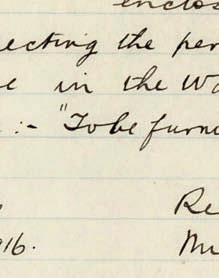 enclos
ecting the per
e in the Wa
:- "To be furni
Re
916. Mi